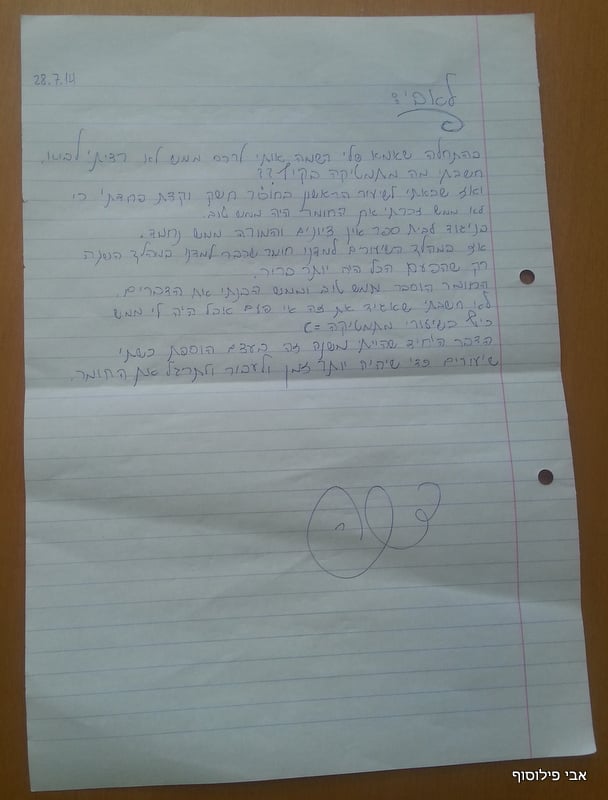 28.7.14
לאבי:
בהתחלה שאמא שלי רשמה אותי לקורס ממש לא רציתי לבוא.
חשבתי מה מתמטיקה בקיץ??
ואז שבאתי לשיעור הראשון בחוסר חשק וקצת פחדתי כי
לא ממש זכרתי את החומר היה ממש טוב.
בניגוד לבית ספר אין ציונים והמורה ממש נחמד.
אז במהלך השיעורים למדנו חומר שכבר למדנו במהלך השנה
רק שהפעם הכל היה יותר ברור.
החומר הוסבר ממש טוב וממש הבנתי את הדברים.
לא חשבתי שאגיד את זה אי פעם אבל היה לי ממש
כיף בשיעורי מתמטיקה =)
הדבר היחיד שהייתי משנה זה בעצם הוספת כשתי
שיעורים כדי שיהיה יותר זמן לעבור ולתרגל את החומר.
אבי פילוסוף